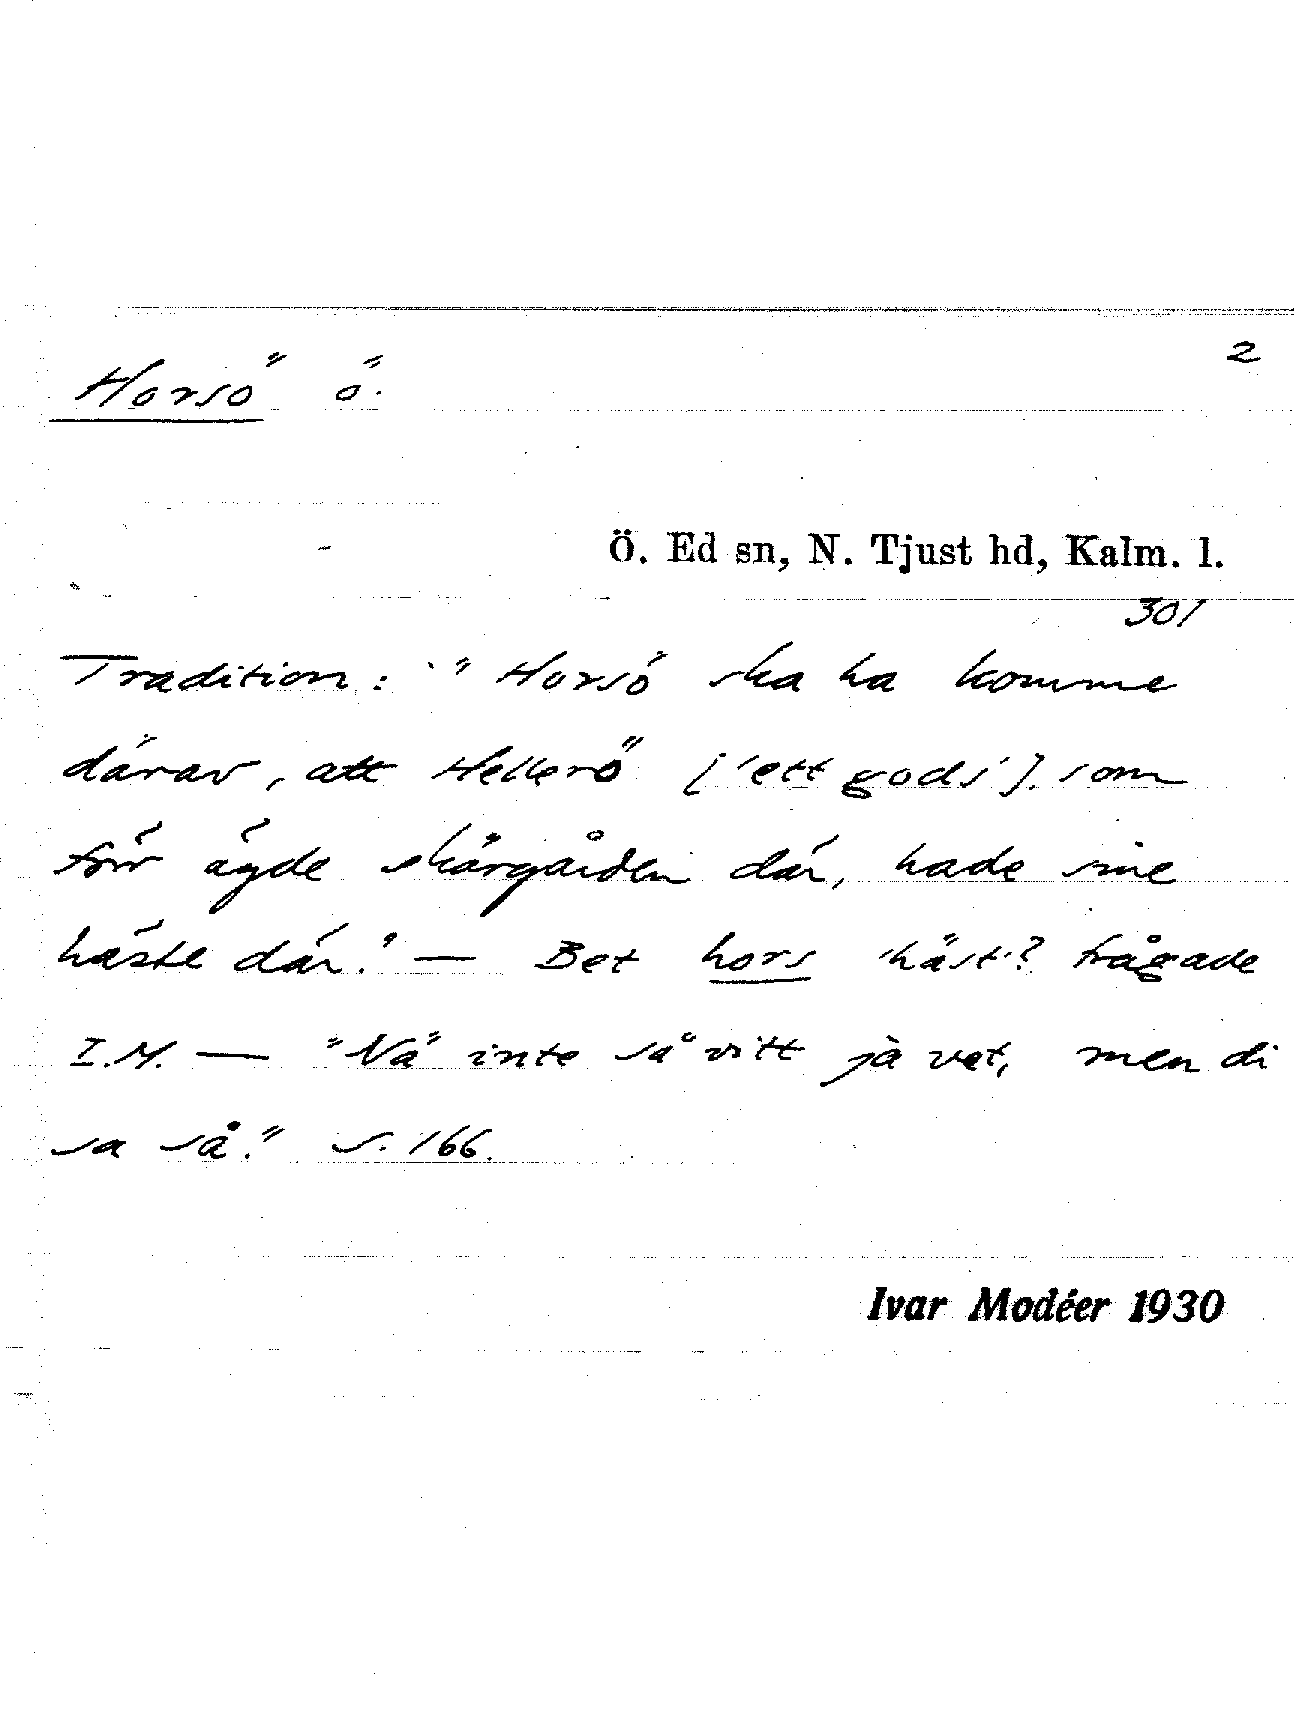 Horsö ö.
2
Ö. Ed sn, N. Tjust hd, Kalm. l.
301
Tradition: "Horsö ska ha komme
därav, att Hellerö ['ett gods'], som
förr ägde skärgården där, hade sine
häste där." — Bet hors 'häst'? frågade
I.M. — "Nä inte så vitt ja vet, men di
sa så." s. 166.
Ivar Modéer 1930